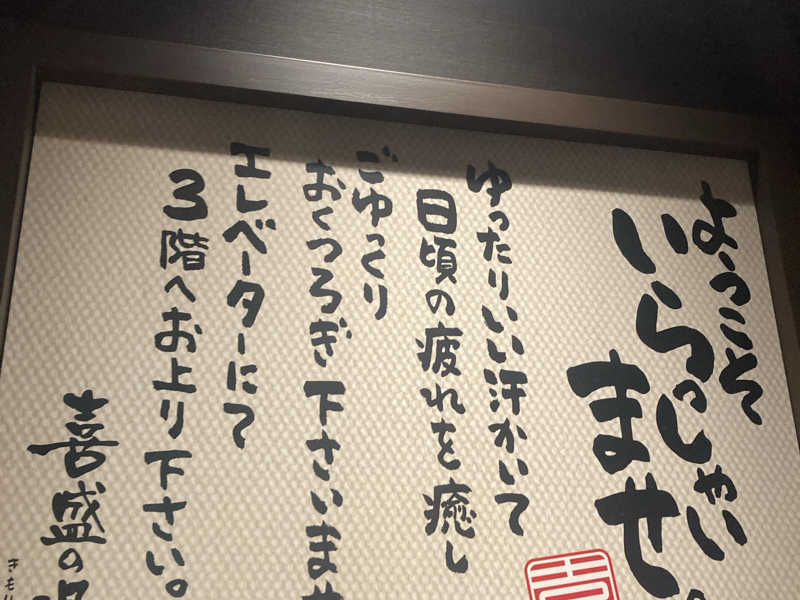 ようこそ
いらっしゃい
ませ。
ゆったりいい汗かいて
日頃の疲れを癒し
ごゆっくり
おくつろぎ下さいませ
エレベーターにて
3階へお上り下さい。
喜盛の湯
きもり